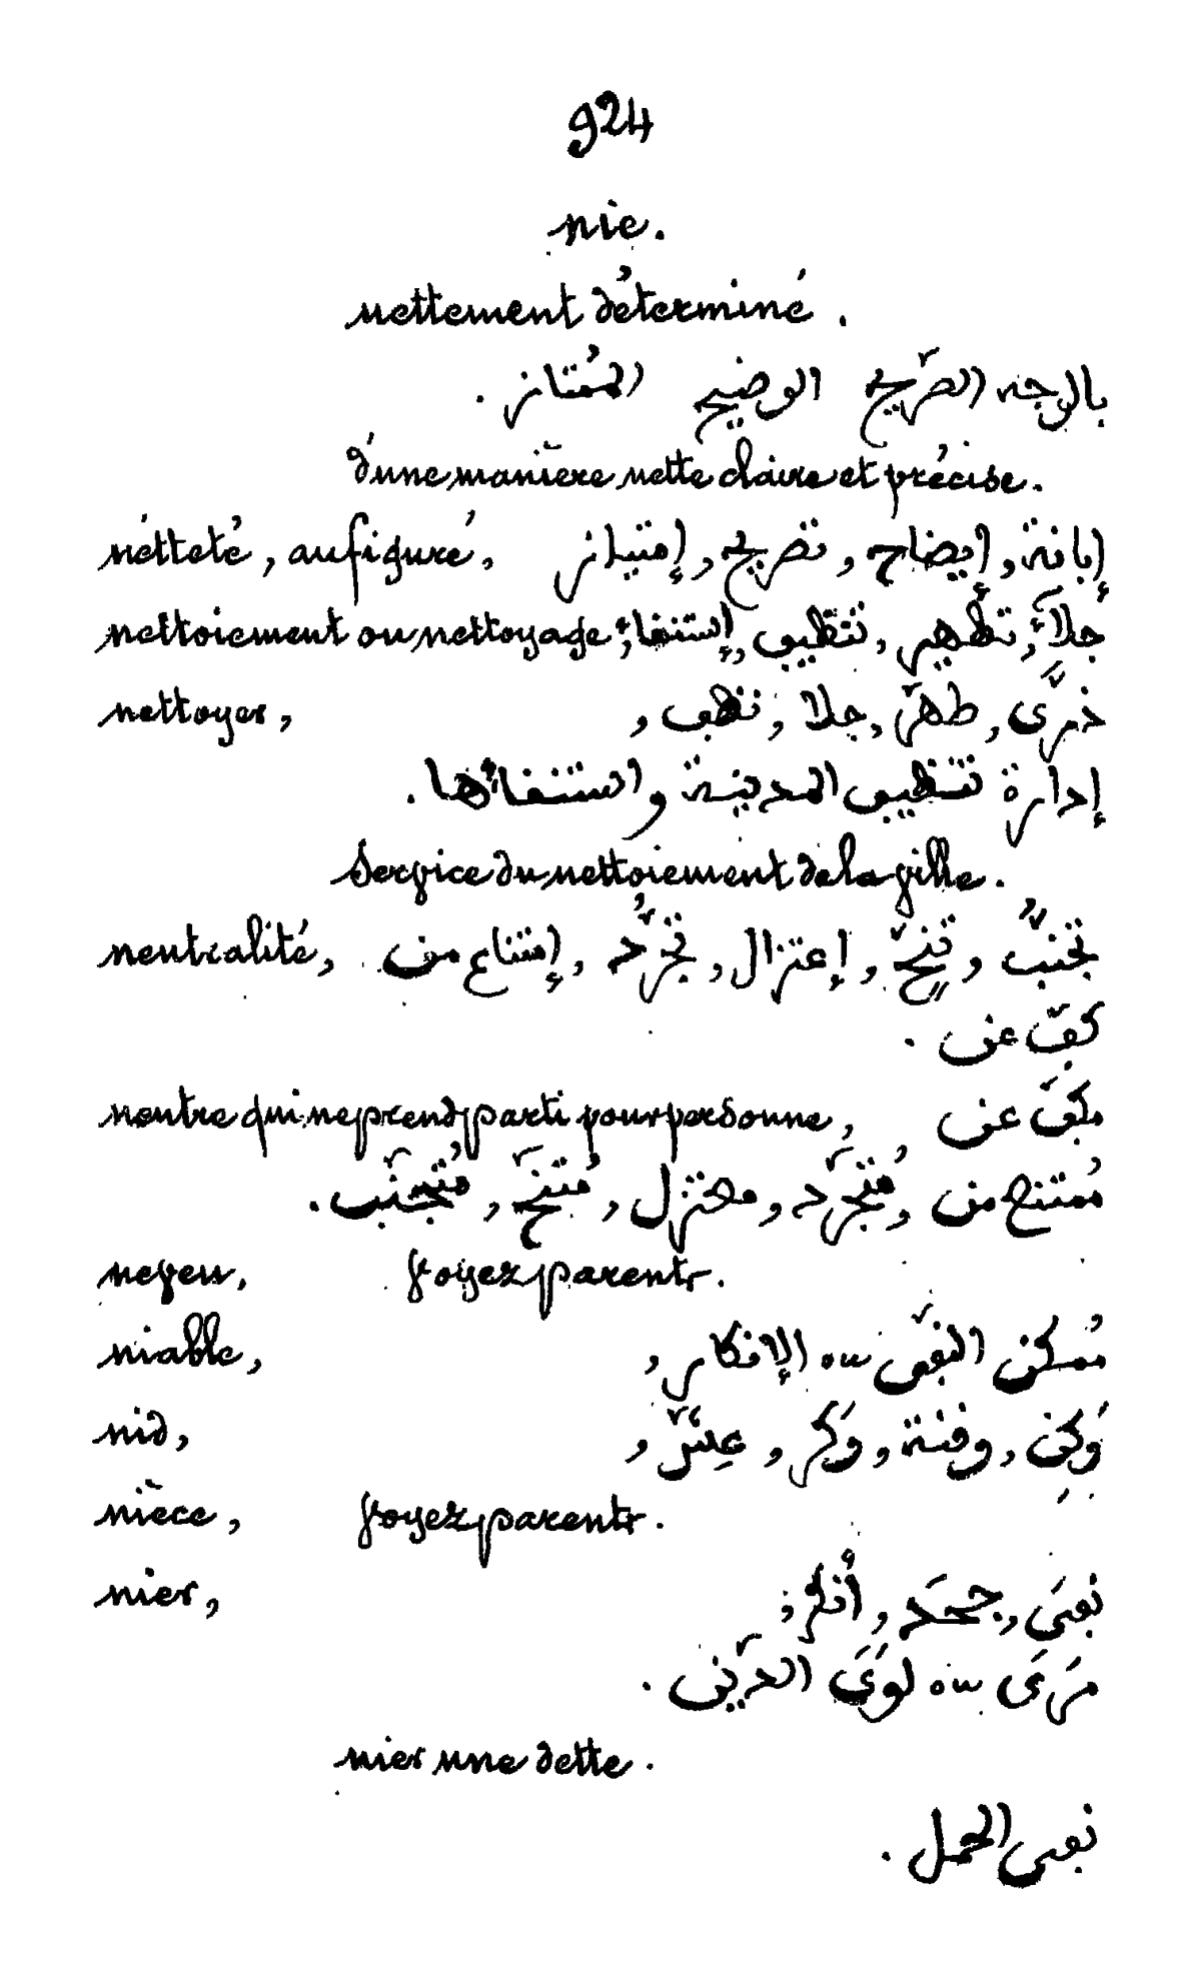 924
nie.
nettement déterminé.
بالوجه الصّريح الوضيح المُمتاز.
d'une manière nette claire et précise.
nétteté, au figuré, إبانة, إيضاح, تصريح, إمتياز
nettoiement ou nettoyage, جلاءٌ, تطهير, تنظيف, إستنقاء
nettoyer, طهّر, جلا, نظف,
إدارة تنظيف المدينة واستنقائها.
Service du nettoiement de la ville.
neutralité, تجنّبٌ, تنحٍّ, إعتزال, تجرّد, إمتناع من
كفّ عن.
neutre qui ne prend parti pour personne, مكفّ عن
مُمتنع من, مُتجرّد, معتزل, مُتنحّ, مُتجنّب.
neveu, voyez parents.
niable, مُمكن النفى ou الإنكار,
nid, وَكن, وقنة, وَكر, عِشّ,
nièce, voyez parents.
nier, نفىَ, جحَد, أنكر;
مَرَىَ ou لَوَىَ الدّين.
nier une dette.
نفى الحمل.